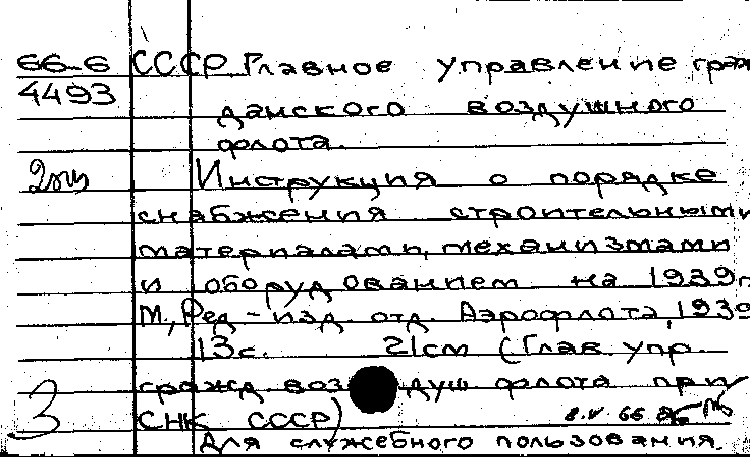 66-6 СССР Главное управление граж
4493 данского воздушного
флота.
2экз Инструкция о порядке
снабжения строительными
материалами, механизмами
и оборудованием на 1939г.
М., Ред-изд. отд. Аэрофлота, 1939
13с. 21см (Глав. упр.
гражд. воздуш флота при
3 СНК СССР)
8.V.66
Для служебного пользования.